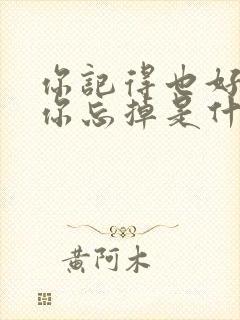 你記得也好
你忘掉是什
黃阿木